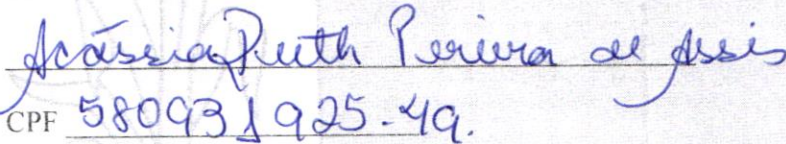 Acássia Ruth Pereira de Assis
CPF 580931925-49.